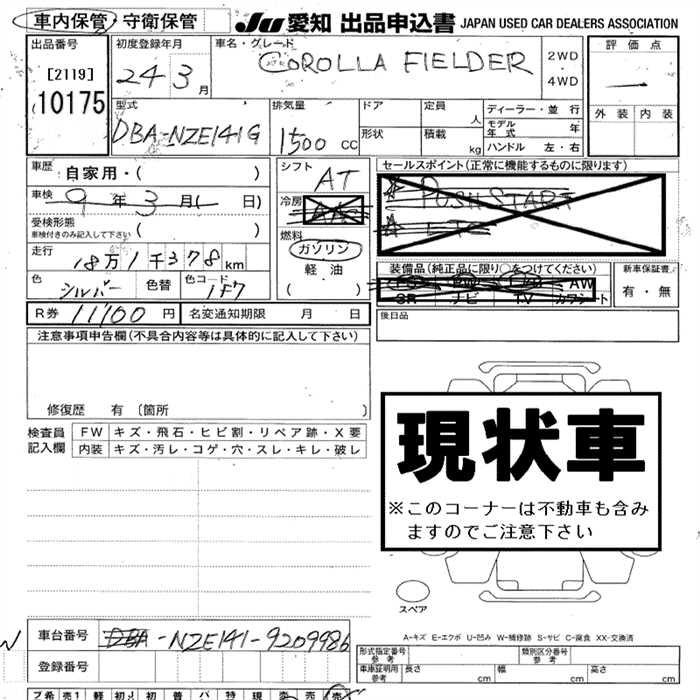 車内保管・守衛保管 JU 愛知 出品申込書 JAPAN USED CAR DEALERS ASSOCIATION
出品番号 初度登録年月 車名・グレード 評価点
[2119] 24 3月 COROLLA FIELDER 2WD 4WD
10175
型式 排気量 ドア 定員 人 ディーラー・並行 外装 内装
DBA-NZE141G 1500 CC 形状 積載 kg モデル年式 年
ハンドル 左・右
車歴 自家用・( ) シフト AT セールスポイント(正常に機能するものに限ります)
車検 9年3月( 日) 冷房 PUSH START
受検形態 ( )
車検付きのみ記入して下さい
燃料
走行 18万1千378km ガソリン 装備品(純正品に限り○をつけてください) 新車保証書
色 シルバー 色替 色コード 1F7 軽油 ( ) AW 有・無
SR ナビ TV カワシート
R券 11100円 名変通知期限 月 日 後日品
注意事項申告欄(不具合内容等は具体的に記入して下さい)
修復歴 有 〔箇所 〕
検査員 FW キズ・飛石・ヒビ割・リペア跡・X要
記入欄 内装 キズ・汚レ・コゲ・穴・スレ・キレ・破レ
現状車
※このコーナーは不動車も含み
ますのでご注意下さい
スペア
A-キズ E-エクボ U-凹み W-補修跡 S-サビ C-腐食 XX-交換済
車台番号 DBA-NZE141-9209986
形式指定番号 参考 類別区分番号 参考
登録番号 車庫証明用 参考 長さ cm 幅 cm 高さ cm